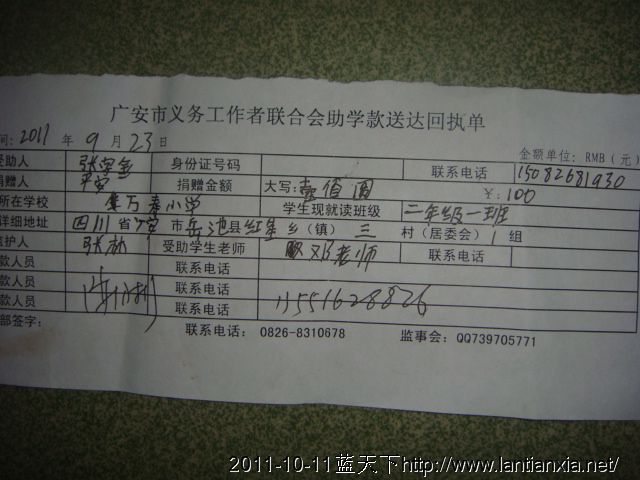 广安市义务工作者联合会助学款送达回执单
间：2011 年 9 月 23 日 金额单位：RMB（元）
受助人 身份证号码 联系电话 15082681930
捐赠人 捐赠金额 大写： ￥：100
所在学校 小学 学生现就读班级 二年级一班
详细地址 四川 省 广安 市 岳池县红星 乡（镇） 三 村（居委会） 1 组
监护人 受助学生老师 邓老师 联系电话
款人员 联系电话
款人员 联系电话
款人员 联系电话 11551628826
部签字： 联系电话： 0826-8310678 监事会：QQ739705771
2011-10-11蓝天下http://www.lantianxia.net/